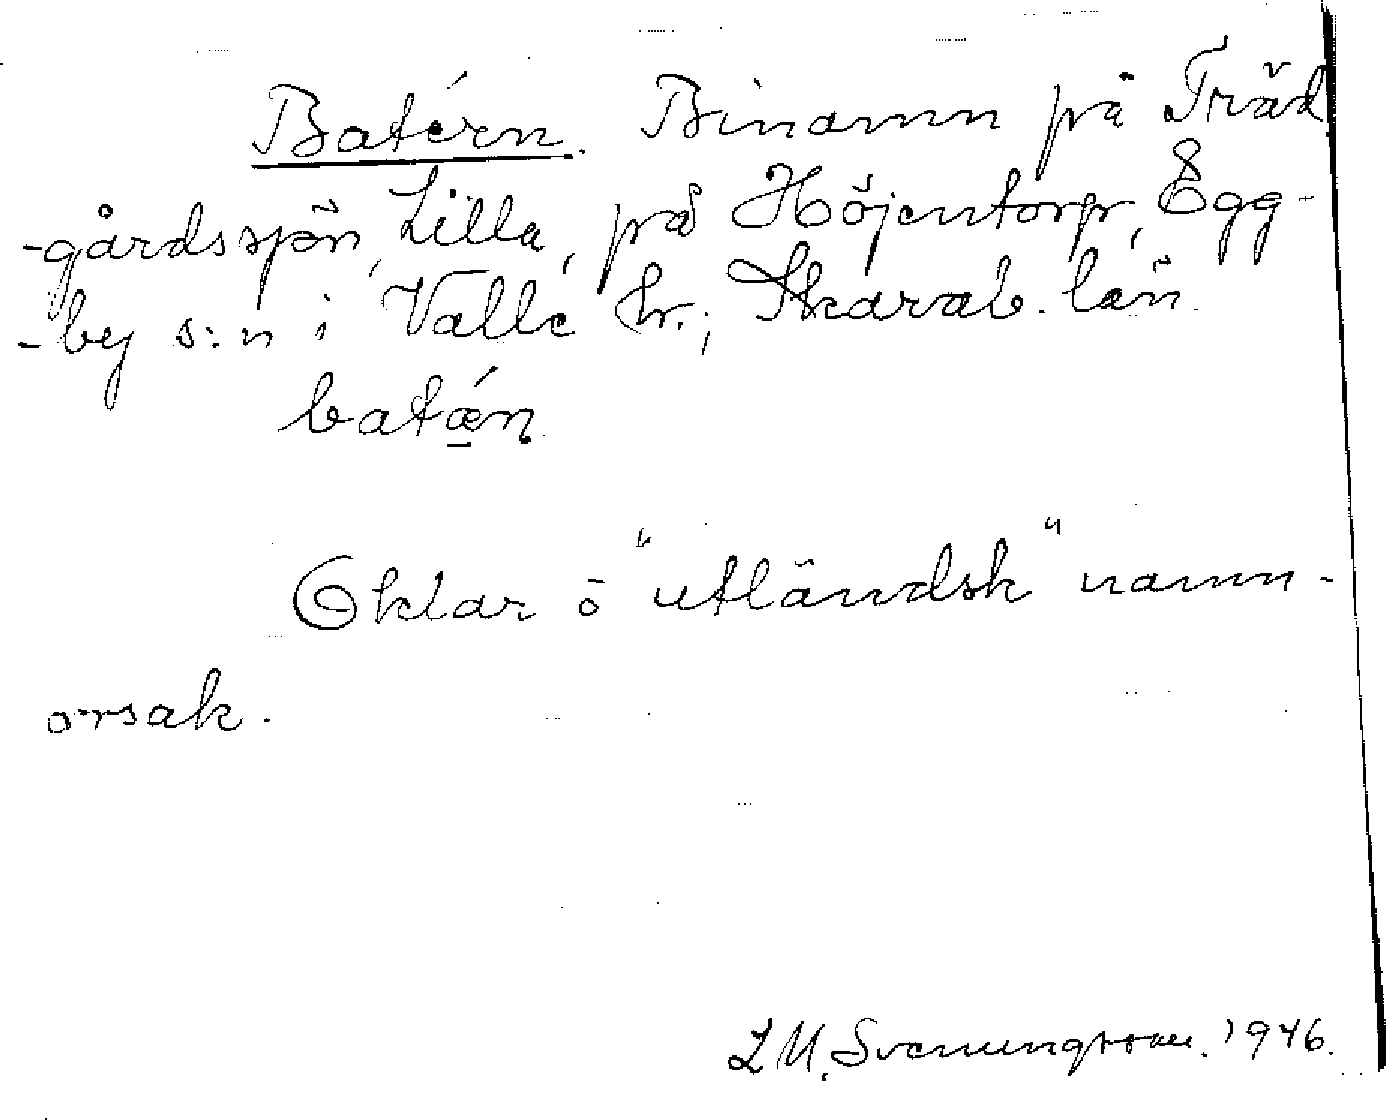 Batérn. Binamn på Träd
-gårdssjön, Lilla, på Höjentorp, Egg-
-by s:n i Valle hr., Skarab. län.
batǽn
Oklar o "utländsk" namn-
orsak.
L M. Svenungsson. 1946.